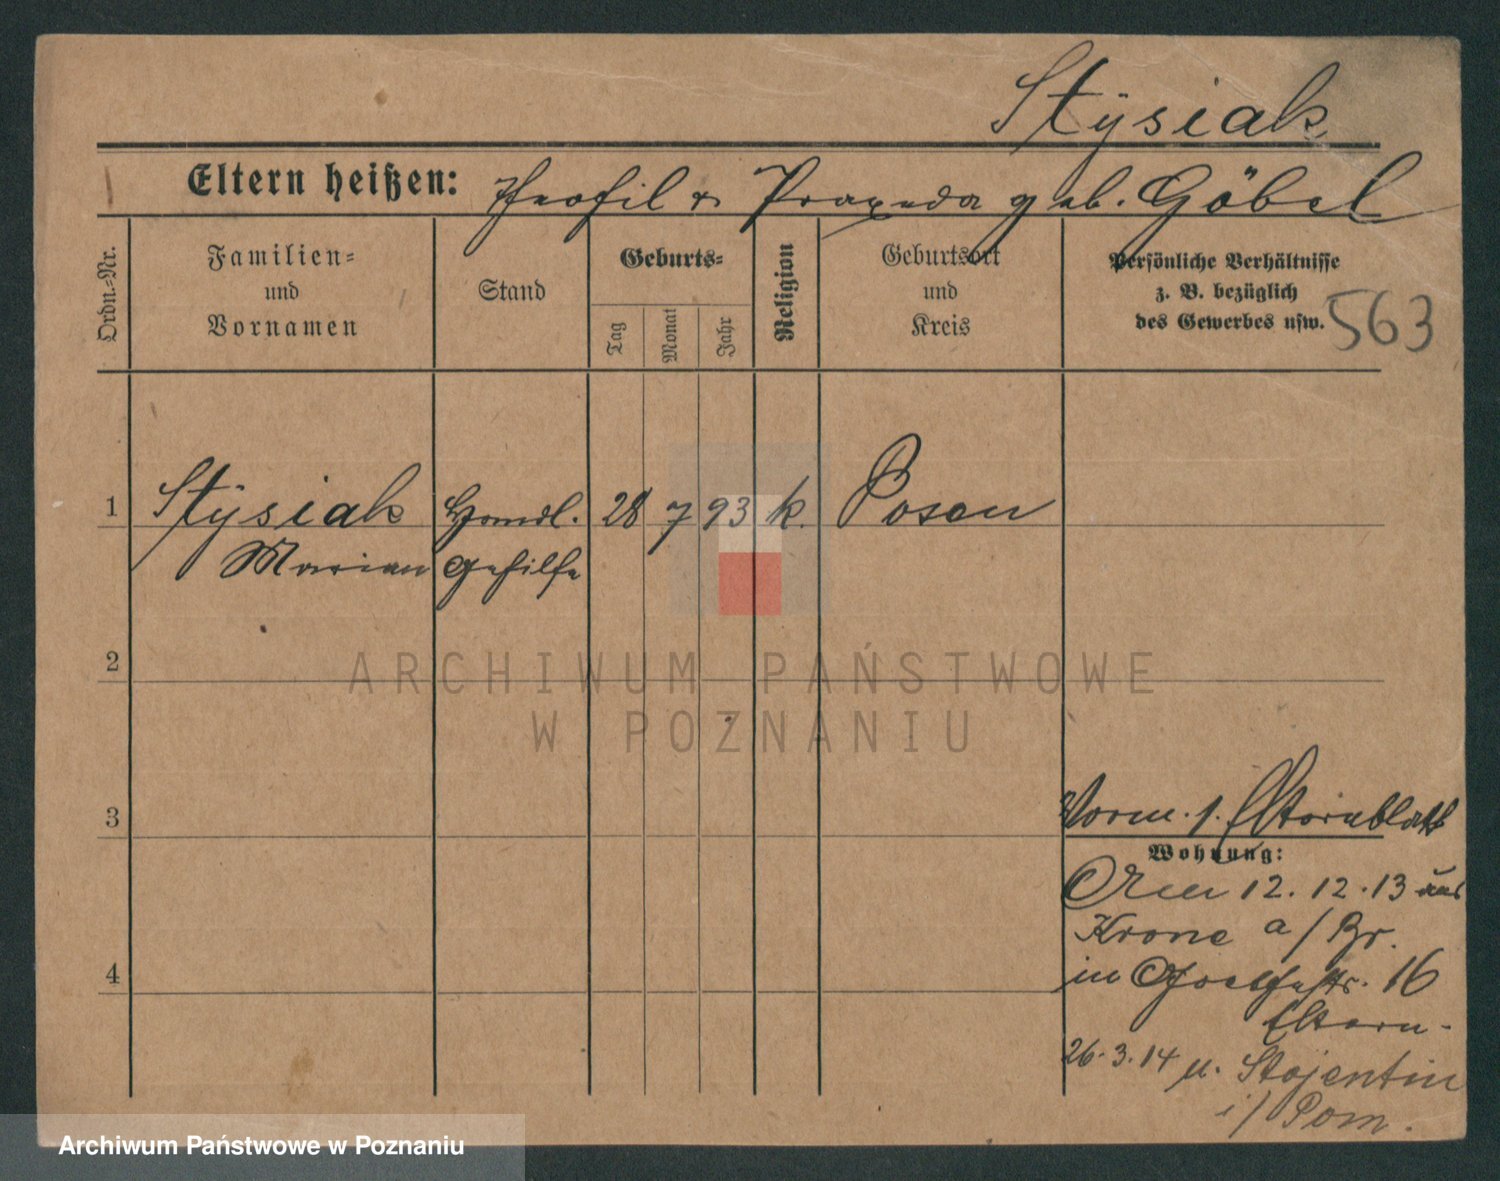 Stÿsiak
Eltern heißen: Theofil u. Praxeda geb. Göbel
Ordn.-Nr.
Familien-
und
Vornamen
Stand
Geburts-
Tag
Monat
Jahr
Religion
Geburtsort
und
Kreis
Persönliche Verhältnisse
z. B. bezüglich
des Gewerbes usw.
563
1 Stÿsiak Handl. 28 7 93 k. Posen
Marian Gehilfe
2
ARCHIWUM PAŃSTWOWE
W POZNANIU
3
Vorm. s. Elternblatt
Wohnung:
Am 12.12.13 aus
Krone a/Br.
4
in 16
Eltern.
26.3.14 n. Stojentin
i/Pom.
Archiwum Państwowe w Poznaniu